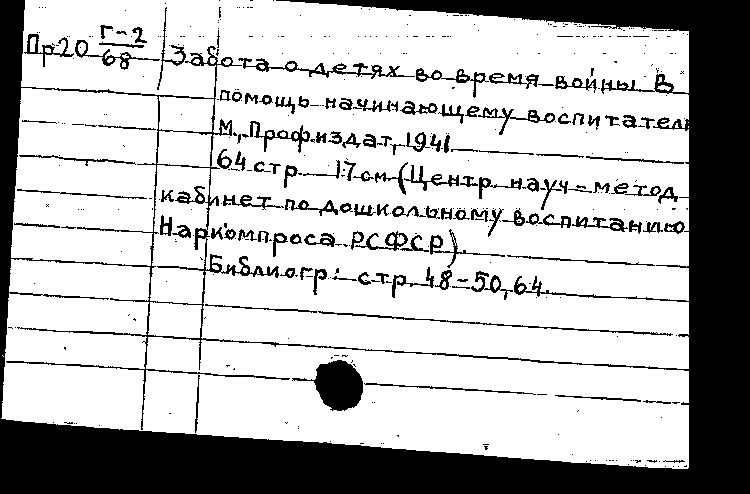 Пр20 Г-2/68 Забота о детях во время войны В
помощь начинающему воспитател
М., Профиздат, 1941.
64 стр. 17 см (Центр. науч-метод
кабинет по дошкольному воспитанию
Наркомпроса РСФСР).
Библиогр: стр. 48-50, 64.